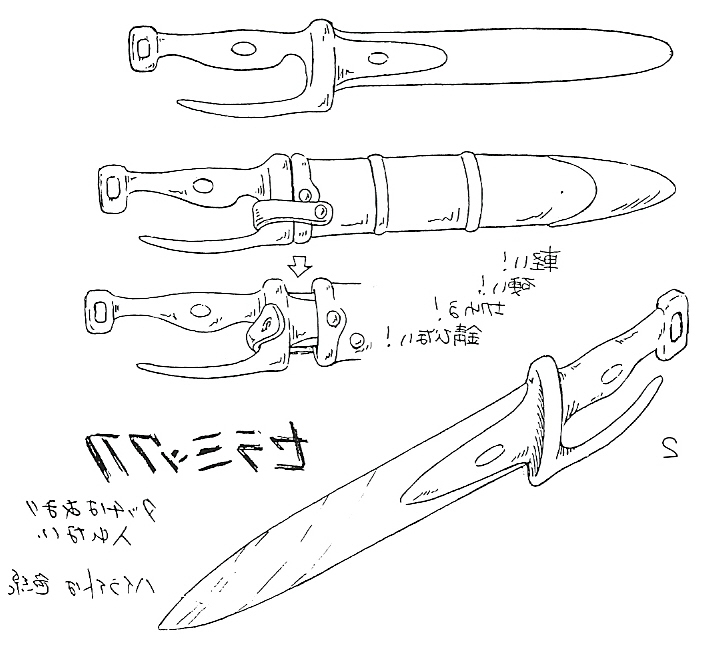 軽い!
硬い!
切れる!
錆びない!
2
セラミック
タッチはあまり
入れない
ハイライトは色線